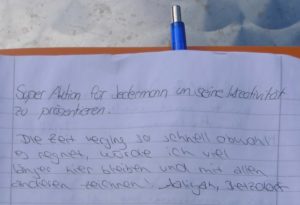 Super Aktion für Jedermann um seine Kreativität
zu präsentieren.
Die Zeit verging so schnell obwohl
es regnet, würde ich viel
länger hier bleiben und mit allen
anderen zeichnen!